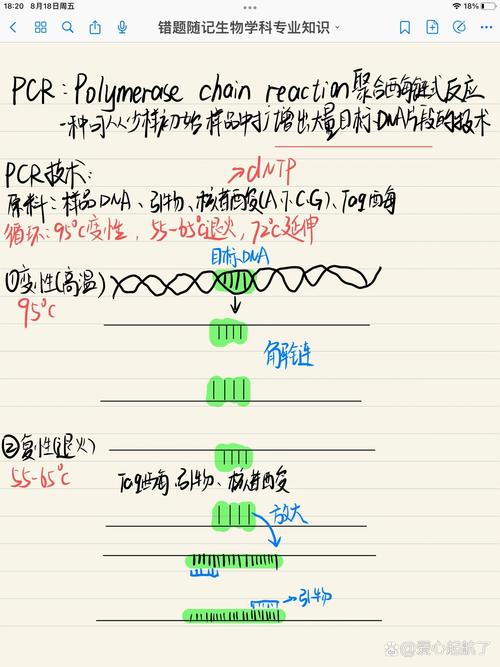 18:20 8月18日周五
18%
错题随记生物学科专业知识
PCR：Polymerase chain reaction 聚合酶链式反应
一种可从少样初始样品中扩增出大量目标DNA片段的技术
PCR技术：
→dNTP
原料：样品DNA、引物、核苷酸(A.T.C.G)、Taq酶
循环：95℃变性，55-65℃退火，72℃延伸
目标DNA
①变性(高温)
95℃
解链
②复性(退火)
55-65℃
Taq酶、引物、核苷酸
放大
→引物
爱心起航了